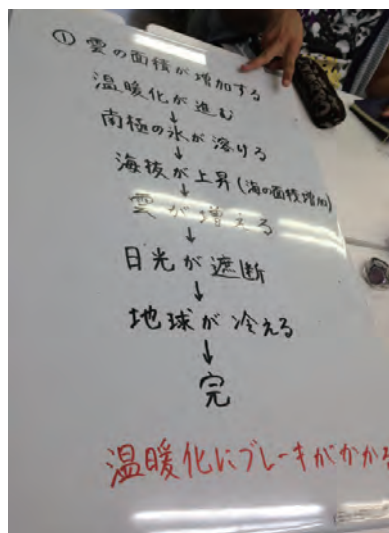 ① 雲の面積が増加する
温暖化が進む
↓
南極の氷が溶ける
↓
海抜が上昇(海の面積増加)
↓
雲が増える
↓
日光が遮断
↓
地球が冷える
↓
完
温暖化にブレーキがかかる